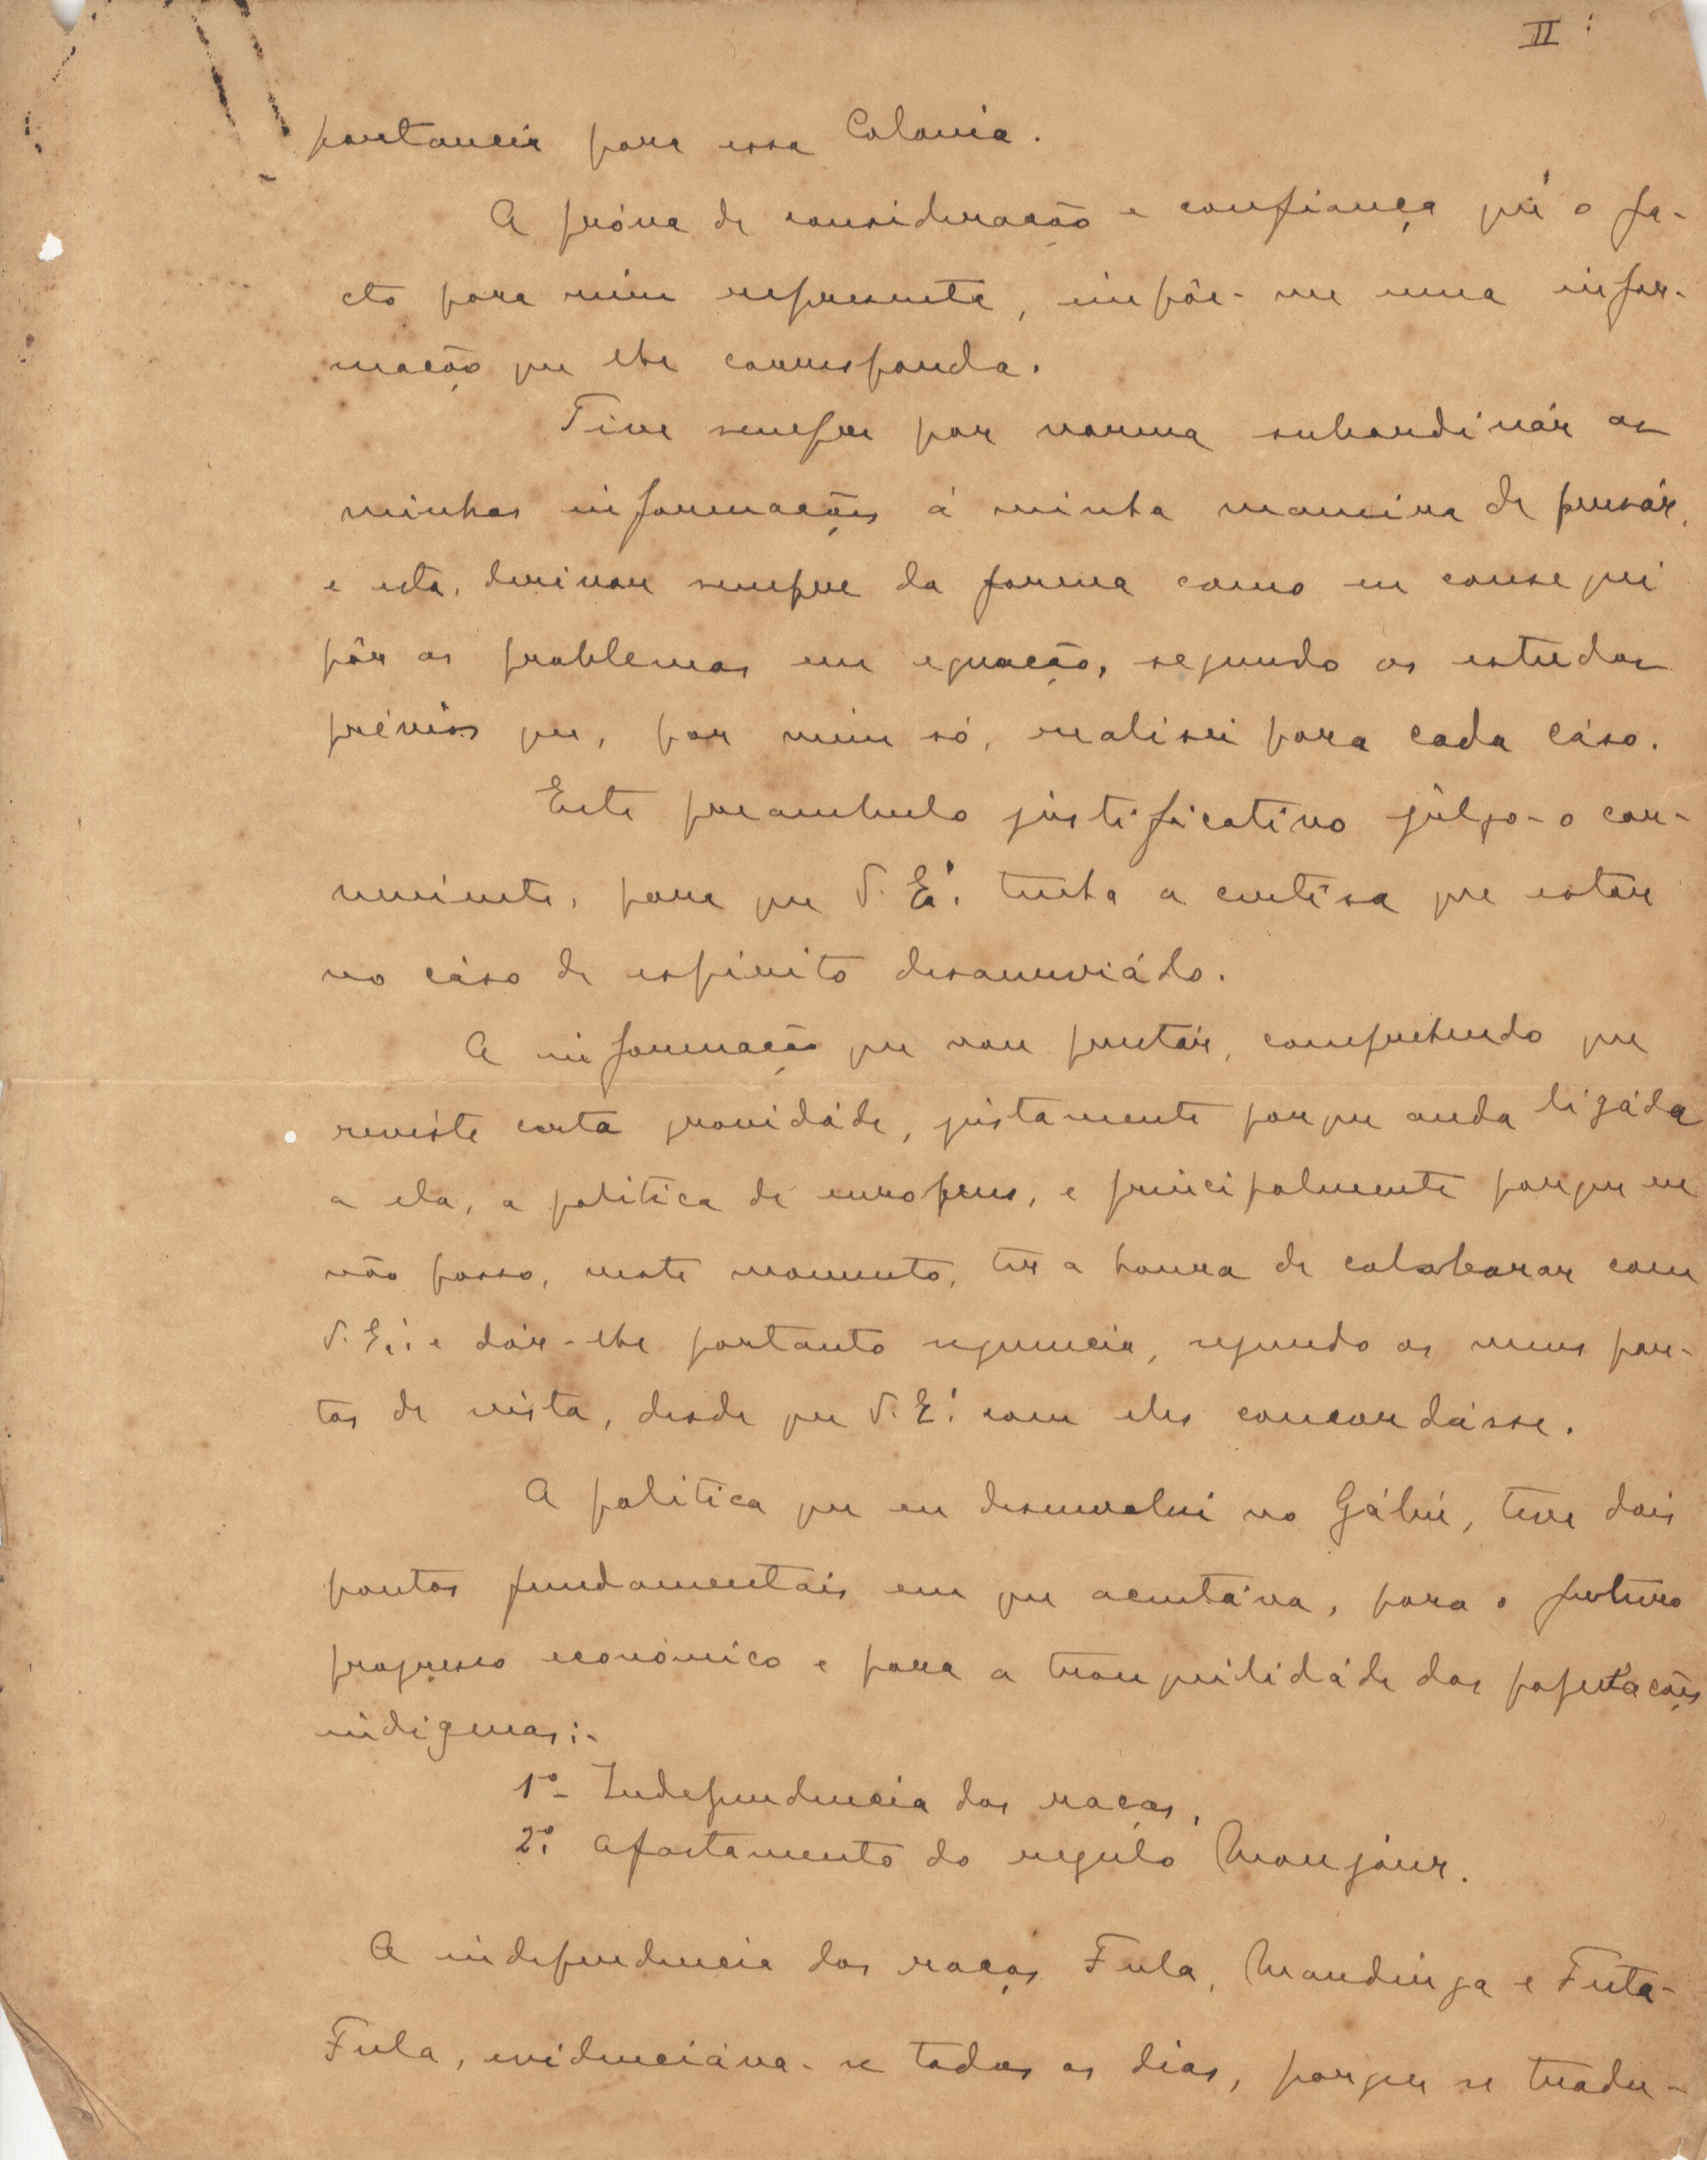 II
portancia para essa Colonia.
A próva de consideração e confiança que o fa-
cto para mim representa, impõe-me uma infor-
mação que lhe corresponda.
Tive sempre por norma subordinár as
minhas informações á minha maneira de pensár,
e esta, derivou sempre da forma como eu consegui
pôr os problemas em equação, segundo os estudos
prévios que, por mim só, realisei para cada cáso.
Este preambulo justificativo júlgo-o con-
veniente, para que V. Exª. tenha a certêsa que estou
no cáso de espirito desanuviádo.
A informação que vou prestár, comprehendo que
reviste certa gravidáde, justamente porque anda ligáda
a ela, a politica de europeus, e principalmente porque eu
não posso, neste momento, ter a honra de colaborar com
V. Exª. e dár-lhe portanto sequencia, segundo os meus pon-
tos de vista, desde que V. Exª. com eles concordásse.
A politica que eu desenvolvi no Gábú, teve dois
pontos fundamentais em que acentáva, para o futuro
progresso económico e para a tranquilidáde das populações
indigenas:-
1º- Independencia das raças,
2º. Afastamento do regulo Monjour.
A independencia das raças Fula, Mandinga e Futa-
Fula, evidenciáva-se todos os dias, porque se tradu-